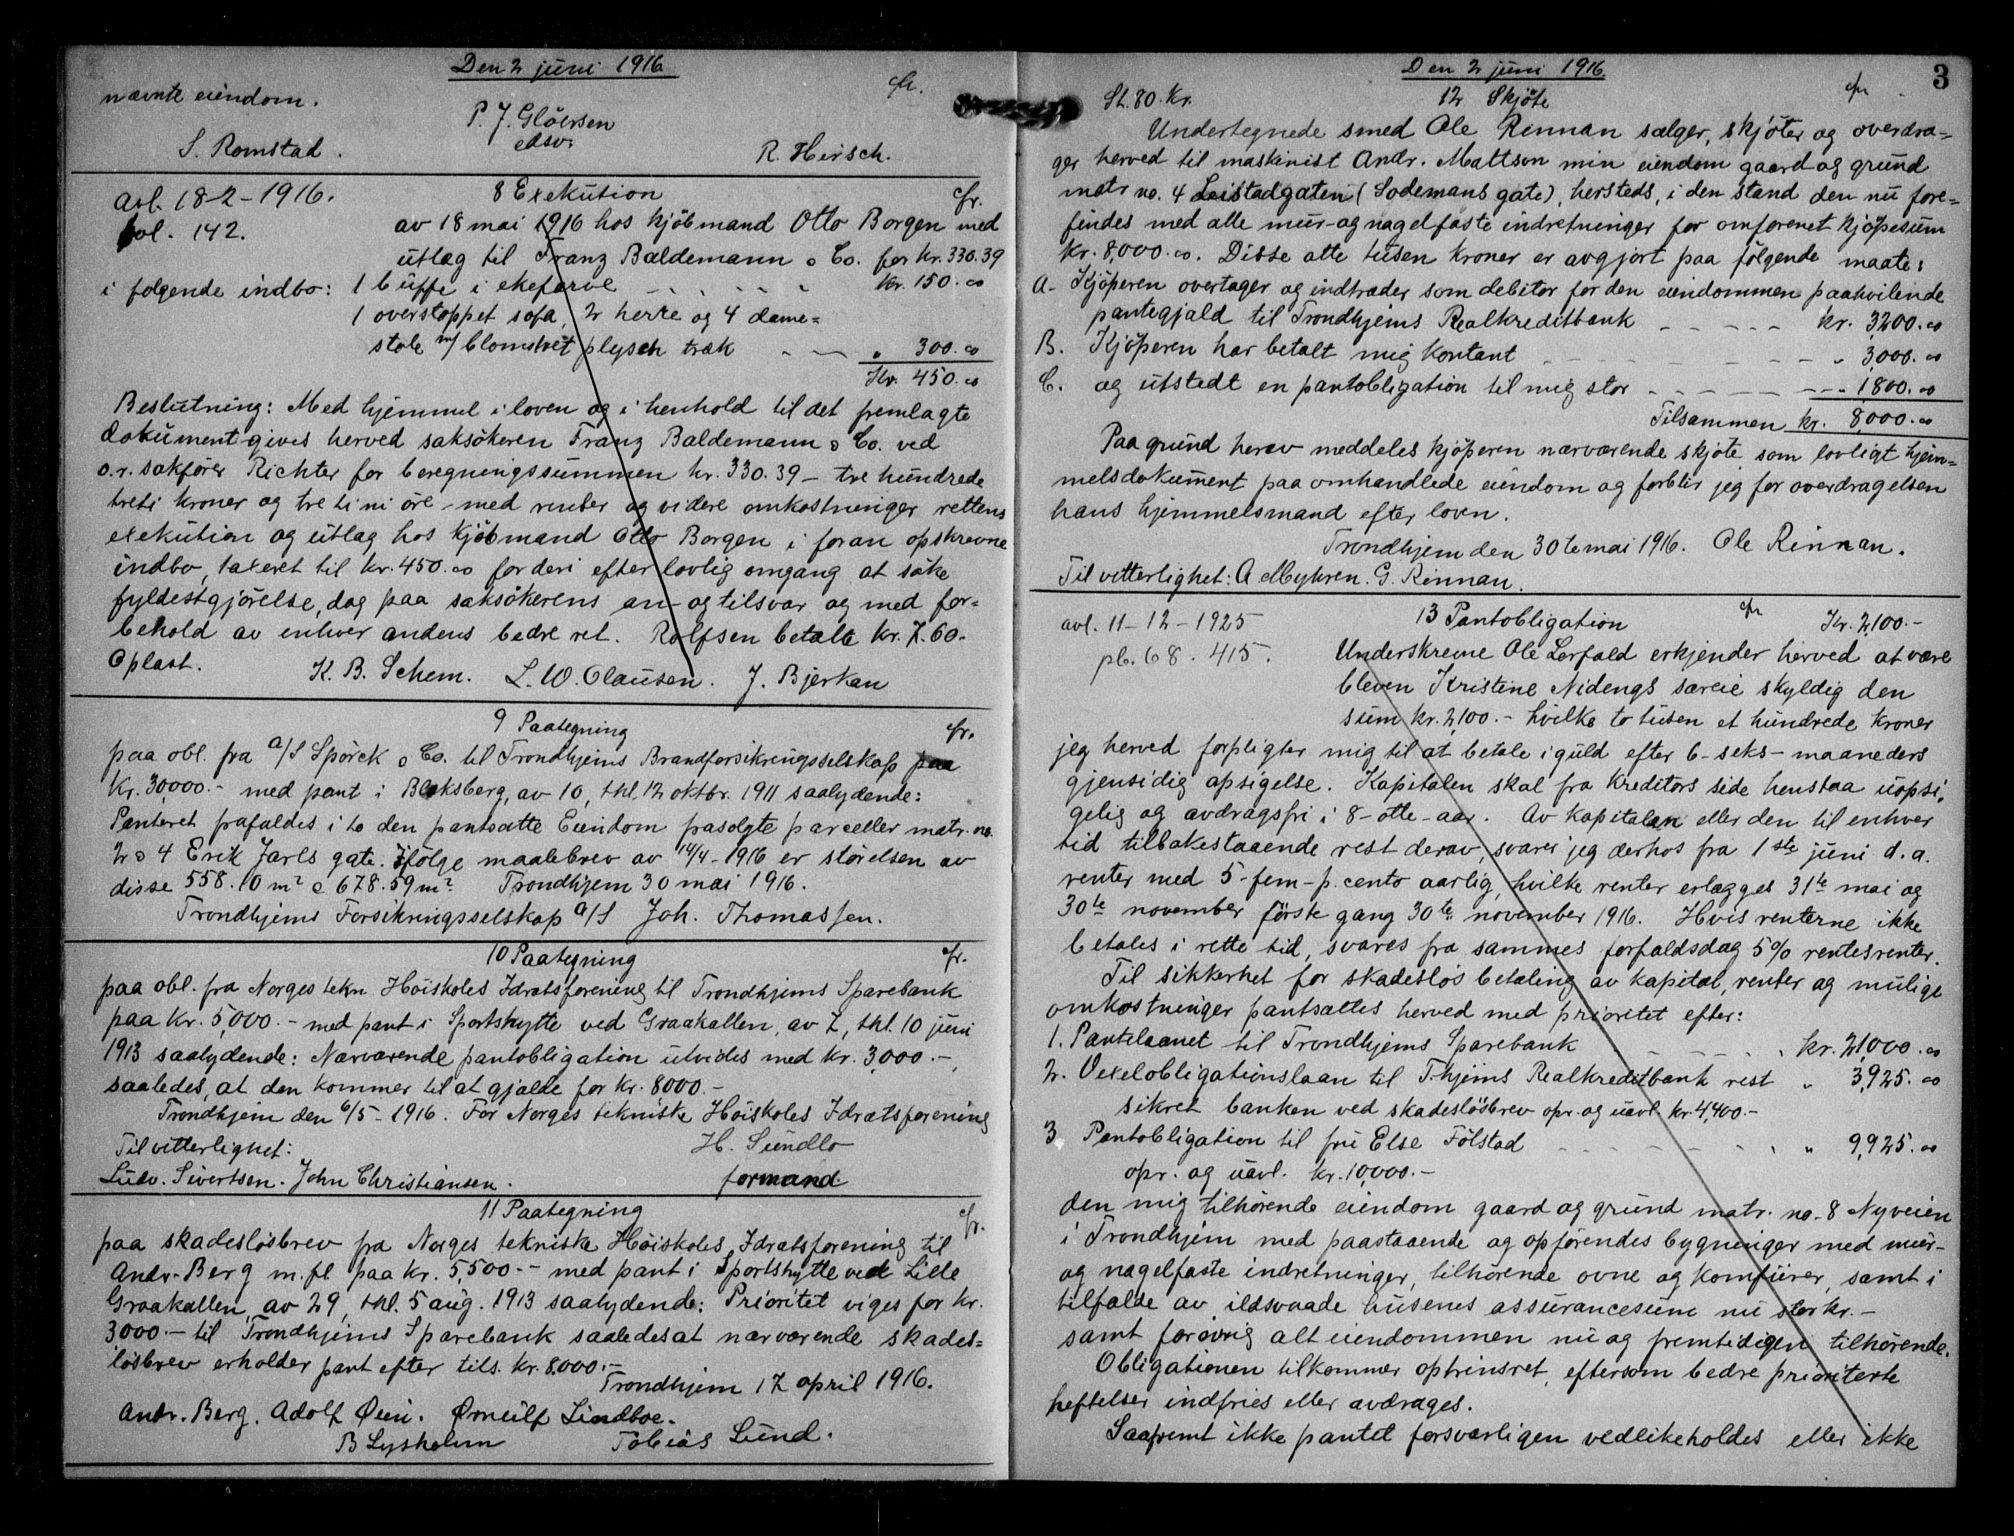 Den 2 juni 1916
cfr.
nævnte eiendom.
P. J. Glöersen
edsv.
S. Romstad. R. Hirsch.
avl. 18-2-1916. 8 Exekution cfr.
fol. 142. av 18 mai 1916 hos kjöbmand Otto Borgen med
utlæg til Franz Baldemann & Co. for kr. 330.39
i følgende indbo: 1 büffe i ekefarve - - - - kr. 150.00
1 overstoppet sofa, 2 herre og 4 dame=
stole m/ blomstret plysch træk - - " 300.00
Kr. 450.00
Beslutning: Med hjemmel i loven og i henhold til det fremlagte
dokument gives herved saksökeren Franz Baldemann & Co. ved
o.r. sakförer Richter for beregningssummen kr. 330.39 - tre hundrede
treti kroner og tre ti ni öre - med renter og videre omkostninger rettens
exekution og utlæg hos kjöbmand Otto Borgen i foran opskrevne
indbo, taxeret til kr. 450.00 for deri efter lovlig omgang at söke
fyldestgjörelse, dog paa saksökerens an- og tilsvar og med for=
behold av enhver andens bedre ret. Rolfsen betalte kr. 7.60.
Oplæst. K. B. Schem. L. W. Clausen. J. Bjerkan
9 Paategning cfr.
paa obl. fra A/S Spörck & Co. til Trondhjems Brandforsikringsselskap paa
Kr. 30,000.- med pant i Bloksberg, av 10, thl. 12 oktbr. 1911 saalydende:
Panteret frafaldes i to den pantsatte Eiendom frasolgte parceller matr. no.
2 & 4 Erik Jarls gate. Ifölge maalebrev av 14/4-1916 er störelsen av
disse 558.10 m² & 678.59 m². Trondhjem 30 mai 1916.
Trondhjems Forsikringsselskap A/S Joh. Thomassen.
10 Paategning cfr.
paa obl. fra Norges tekn Höiskoles Idrætsforening til Trondhjems Sparebank
paa kr. 5,000.- med pant i Sportshytte ved Graakallen, av 7, thl. 10 juni
1913 saalydende: Nærværende pantobligation utvides med kr. 3,000.-,
saaledes, at den kommer til at gjælde for kr. 8000.-
Trondhjem den 6/5-1916. For Norges tekniske Höiskoles Idrætsforening
Til vitterlighet: H. Sundlo
Ludv. Sivertsen. John Christiansen. formand.
11 Paategning cfr.
paa skadeslösbrev fra Norges tekniske Höiskoles Idrætsforening til
Andr. Berg m.fl. paa kr. 5,500.- med pant i Sportshytte ved Lille
Graakallen, av 29, thl. 5 aug. 1913 saalydende: Prioritet viges for kr.
3000.- til Trondhjems Sparebank saaledes at nærværende skades=
lösbrev erholder pant efter tils. kr. 8,000.-
Trondhjem 17 april 1916.
Andr. Berg. Adolf Öien. Ørnulf Lindboe.
B Lysholm Tobias Lund.
Den 2 juni 1916.
3
St. 80. Kr. 12 Skjöte cfr
Undertegnede smed Ole Rennan sælger, skjöter og overdra=
ger herved til maskinist Andr. Mattson min eiendom gaard og grund
matr no. 4 Leistadgaten (Sodemans gate), hersteds, i den stand den nu fore=
findes med alle mur- og nagelfaste indretninger for omforenet kjöpesum
kr. 8,000.00. Disse otte tusen kroner er avgjort paa fölgende maate:
A. Kjöperen overtager og indtræder som debitor for den eiendommen paahvilende
pantegjæld til Trondhjems Realkreditbank - - - - - kr. 3200.00
B. Kjöperen har betalt mig kontant - - - - - - " 3,000.00
C. og utstedt en pantobligation til mig stor - - - - - - 1800.00
Tilsammen kr. 8,000.00
Paa grund herav meddeles kjöperen nærværende skjöte som lovligt hjem=
melsdokument paa omhandlede eiendom og forblir jeg for overdragelsen
hans hjemmelsmand efter loven.
Trondhjem den 30te mai 1916. Ole Rinnan.
Til vitterlighet: A Myhren. G. Rinnan.
avl. 11-12-1925 13 Pantobligation cfr Kr. 2,100.-
pb. 68. 415. Underskrevne Ole Lerfald erkjender herved at være
bleven Kristine Nidengs særeie skyldig den
sum kr. 2,100.- hvilke to tusen et hundrede kroner
jeg herved forpligter mig til at betale i guld efter 6-seks-maaneders
gjensidig opsigelse. Kapitalen skal fra kreditors side henstaa uopsi=
gelig og avdragsfri i 8-otte-aar. Av kapitalen eller den til enhver
tid tilbakestaaende rest derav, svarer jeg derhos fra 1ste juni d.a.
renter med 5-fem-p. cento aarlig, hvilke renter erlægges 31te mai og
30te november förste gang 30te november 1916. Hvis renterne ikke
betales i rette tid, svares fra sammes forfaldsdag 5% rentesrenter.
Til sikkerhet for skadeslös betaling av kapital, renter og mulige
omkostninger pantsættes herved med prioritet efter:
1. Pantelaanet til Trondhjems Sparebank - - - - - kr. 21,000.00
2. Vexelobligationslaan til Thjems Realkreditbank rest " 3,925.00
sikret banken ved skadeslösbrev opr. og uavl. kr 4,400.-
3 Pantobligation til fru Else Fölstad - - - - - - " 9,925.00
opr. og uavl. kr. 10,000.-
den mig tilhörende eiendom gaard og grund matr. no. 8 Nyveien
i Trondhjem med paastaaende og opförendes bygninger med mur-
og nagelfaste indretninger, tilhörende ovne og komfurer, samt i
tilfælde av ildsvaade husenes assurancesum nu stor kr. -
samt forövrig alt eiendommen nu og fremtidigen tilhörende.
Obligationen tilkommer optrinsret, eftersom bedre prioriterte
heftelser indfries eller avdrages.
Saafremt ikke pantet forsvarligen vedlikeholdes eller ikke